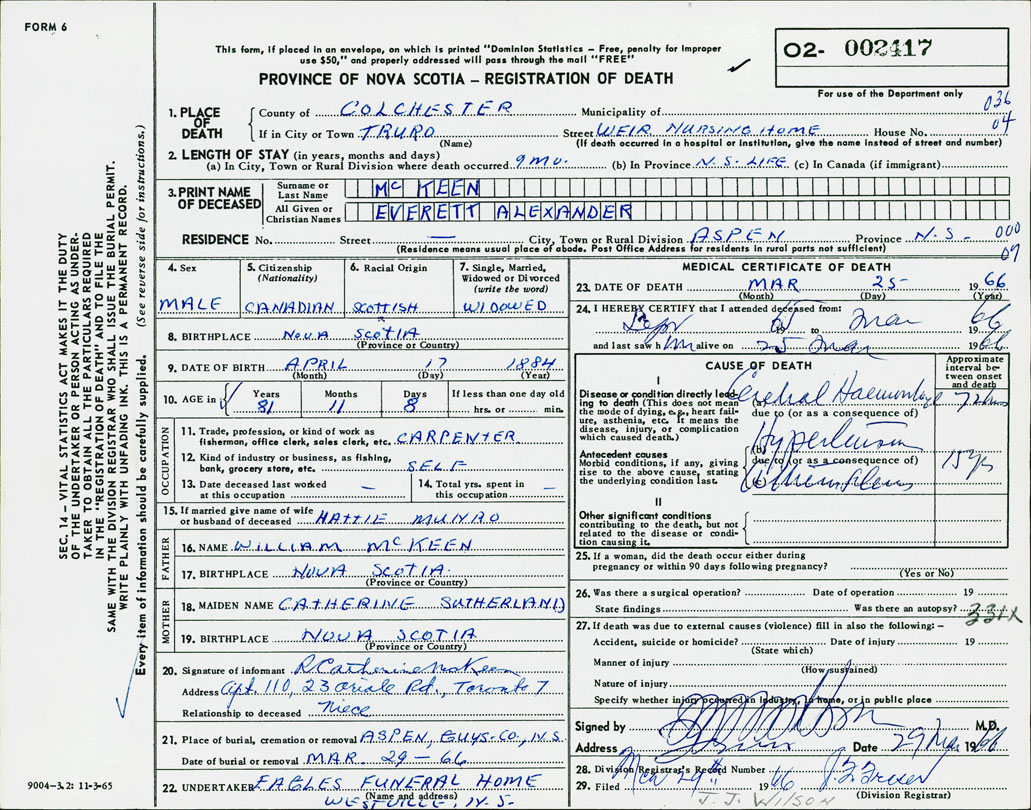 FORM 6
This form, if placed in an envelope, on which is printed "Dominion Statistics – Free, penalty for improper
use $50," and properly addressed will pass through the mail "FREE"
PROVINCE OF NOVA SCOTIA – REGISTRATION OF DEATH
02- 002417
For use of the Department only
036
04
1. PLACE OF DEATH
County of COLCHESTER Municipality of
If in City or Town TRURO Street WEIR NURSING HOME House No.
(Name) (If death occurred in a hospital or institution, give the name instead of street and number)
2. LENGTH OF STAY (in years, months and days)
(a) In City, Town or Rural Division where death occurred 9 MO. (b) In Province N.S. LIFE (c) In Canada (if immigrant)
3. PRINT NAME OF DECEASED
Surname or Last Name McKEEN
All Given or Christian Names EVERETT ALEXANDER
RESIDENCE No. Street — City, Town or Rural Division ASPEN Province N.S. 000
(Residence means usual place of abode. Post Office Address for residents in rural parts not sufficient) 07
4. Sex MALE
5. Citizenship (Nationality) CANADIAN
6. Racial Origin SCOTTISH
7. Single, Married, Widowed or Divorced (write the word) WIDOWED
8. BIRTHPLACE NOVA SCOTIA
(Province or Country)
9. DATE OF BIRTH APRIL 17 1884
(Month) (Day) (Year)
10. AGE in Years 81 Months 11 Days 8 If less than one day old hrs. or min.
OCCUPATION
11. Trade, profession, or kind of work as
fisherman, office clerk, sales clerk, etc. CARPENTER
12. Kind of industry or business, as fishing,
bank, grocery store, etc. SELF
13. Date deceased last worked
at this occupation —
14. Total yrs. spent in
this occupation —
15. If married give name of wife
or husband of deceased HATTIE MUNRO
FATHER
16. NAME WILLIAM McKEEN
17. BIRTHPLACE NOVA SCOTIA
(Province or Country)
MOTHER
18. MAIDEN NAME CATHERINE SUTHERLAND
19. BIRTHPLACE NOVA SCOTIA
(Province or Country)
20. Signature of informant R Catherine McKeen
Address Apt. 110, 23 Oriole Rd., Toronto 7
Relationship to deceased Niece
21. Place of burial, cremation or removal ASPEN, GUYS. CO., N.S.
Date of burial or removal MAR. 29-66
22. UNDERTAKER EAGLES FUNERAL HOME
(Name and address)
WESTVILLE N.S.
MEDICAL CERTIFICATE OF DEATH
23. DATE OF DEATH MAR 25- 1966
(Month) (Day) (Year)
24. I HEREBY CERTIFY that I attended deceased from:
Sept 1965 to Mar 1966
and last saw him alive on 25 Mar 1966
CAUSE OF DEATH
Approximate interval between onset and death
I
Disease or condition directly leading to death (This does not mean the mode of dying, e.g., heart failure, asthenia, etc. It means the disease, injury, or complication which caused death.)
(a) Cerebral Haemorrhage 72 hrs
due to (or as a consequence of)
Antecedent causes
Morbid conditions, if any, giving rise to the above cause, stating the underlying condition last.
(b) Hypertension
due to (or as a consequence of) 15 yrs
(c)
II
Other significant conditions
contributing to the death, but not related to the disease or condition causing it.
25. If a woman, did the death occur either during
pregnancy or within 90 days following pregnancy?
(Yes or No)
26. Was there a surgical operation? Date of operation 19
State findings Was there an autopsy? 331X
27. If death was due to external causes (violence) fill in also the following: –
Accident, suicide or homicide? Date of injury 19
(State which)
Manner of injury
(How sustained)
Nature of injury
Specify whether injury occurred in industry, home, or in public place
Signed by M.D.
Address Date 29 Mar 1966
28. Division Registrar's Record Number
29. Filed 1966
(Division Registrar)
J. J. WILSON
SEC. 14 – VITAL STATISTICS ACT MAKES IT THE DUTY
OF THE UNDERTAKER OR PERSON ACTING AS UNDER-
TAKER TO OBTAIN ALL THE PARTICULARS REQUIRED
IN THE "REGISTRATION OF DEATH" AND TO FILE THE
SAME WITH THE DIVISION REGISTRAR WHO SHALL ISSUE THE BURIAL PERMIT.
WRITE PLAINLY WITH UNFADING INK. THIS IS A PERMANENT RECORD.
Every item of information should be carefully supplied. (See reverse side for instructions.)
9004-3.2: 11-3-65